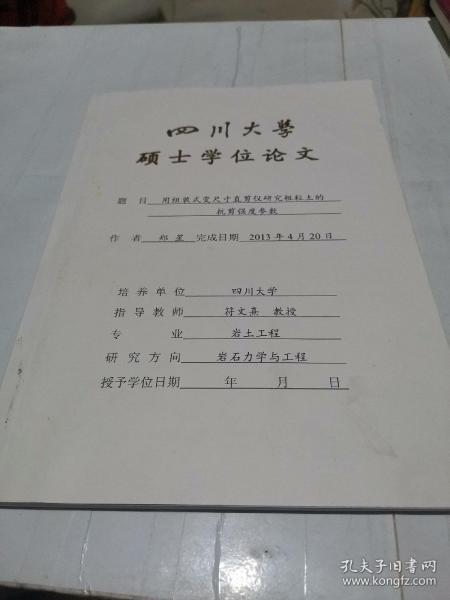 四川大學
硕士学位论文
题 目 用组装式变尺寸直剪仪研究粗粒土的
抗剪强度参数
作 者 郑 星 完成日期 2013年4月20日
培 养 单 位 四川大学
指 导 教 师 符文熹 教授
专 业 岩土工程
研 究 方 向 岩石力学与工程
授予学位日期 年 月 日
孔夫子旧书网
www.kongfz.com